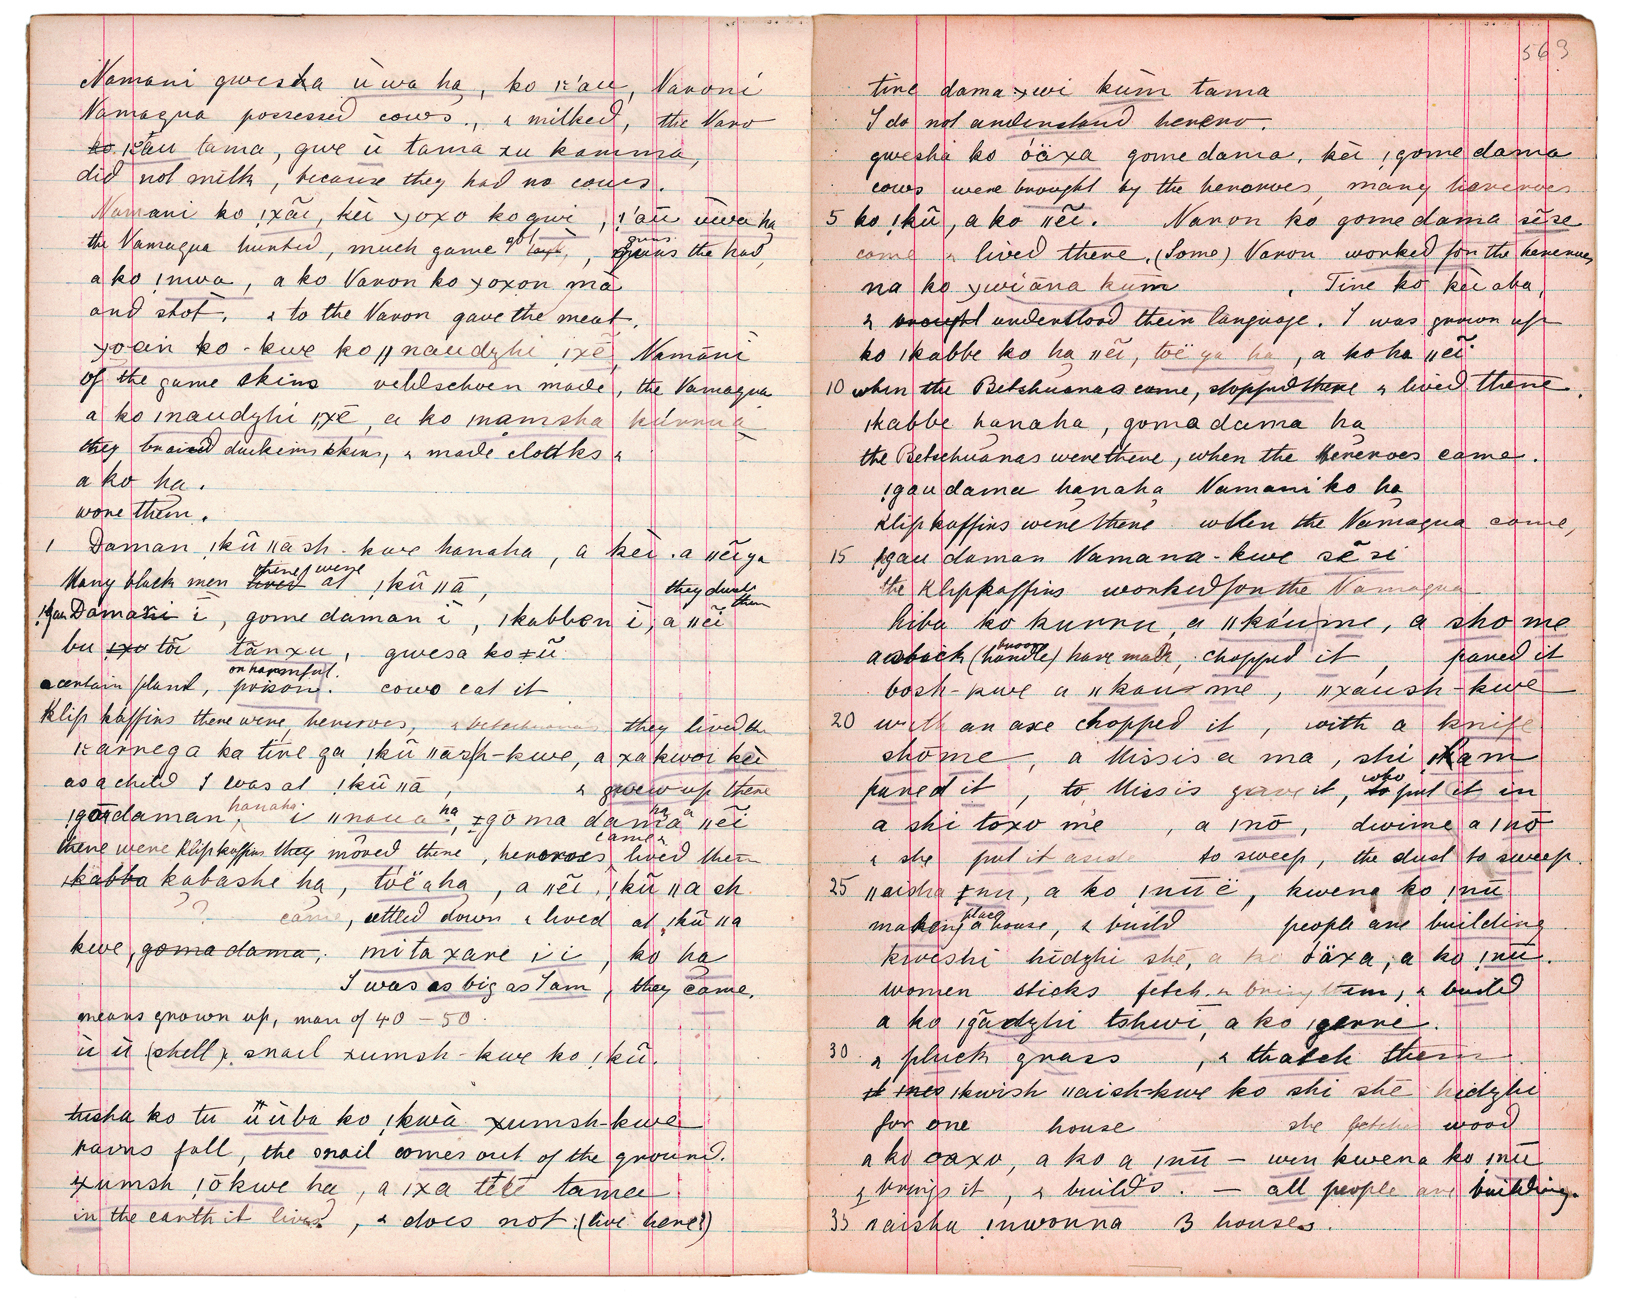 Namani gwesha ù wa ha, ko κ'au, Naroni
Namaqua possessed cows, & milked, the Naro
ko κ'au tama, gwe ù tama xu komma,
did not milk, because they had no cows.
Namani ko ꞁxãi, kèi ɣoxo kogwi, ꞁ'aũ ùwa ha
the Namaqua hunted, much game got, guns the had,
a ko ꞁnwa, a ko Naron ko ɣoxon mā
and shot, & to the Naron gave the meat.
ɣoan ko-kwe ko ǁnaudzhi ꞁxē, Namāni
of the game skins veldschoen made, the Namaqua
a ko ꞁnaudzhi ꞁxē, a ko ꞁnamsha kúrrua
they braied duckeins skins, & made cloths &
a ko ha.
wore them.
1 Daman ꞁkũ ǁāsh-kwe hanaha, a kèi a ǁẽi ya
Many black men there were at ꞁkũ ǁā, they dwelt then
ꞁgau Damani i, gome daman i, ꞁkabben i, a ǁẽi
bu tõi tãnxu, gwesa ko ǂũ
a certain plant, poison. or harmful. cows eat it
Klip kaffirs there were, hereroes, & betschuanas they lived the
κarrega ka tire ga ꞁkũ ǁāsh-kwe, a xakwoi kèi
as a child I was at ꞁkũ ǁā, & grew up there
ꞁgãudaman hanaha i ǁnoua ha, ǂgo ma dama ha a ǁẽi
there were Klipkaffirs they moved there, hereroes came lived then
ꞁkabba kabashe ha, toë aha, a ǁẽi, ꞁkũ ǁa sh
?? came, settled down & lived at ꞁkũ ǁa
kwe, goma dama, mi ta xare i i, ko ha
I was as big as I am, they came.
means grown up, man of 40 - 50.
ù ù (shell), snail xumsh-kwe ko ꞁkũ.
tusha ko tu ù ùba ko ꞁkwà xumsh-kwe
rains fall, the snail comes out of the ground.
xumsh ꞁõ kwe ha, a ꞁxa tẽẽ tama
in the earth it lives, & does not (live here?)
563
tire dama ɣwi kùm tama
I do not understand herero.
gwesha ko óäxa gome dama, kèi ꞁgome dama
cows were brought by the hereroes, many hereroes
5 ko ꞁkũ, a ko ǁẽi. Naron ko gome dama sẽse
came & lived there. (Some) Naron worked for the hereroes
na ko ɣwiāna kùm, Tire ko kèi aba,
& brought understood their language. I was grown up
ko ꞁkabbe ko ha ǁẽi, toë ya ha, a ko ha ǁẽi
10 when the Betschuanas came, stopped there & lived there.
ꞁkabbe hanaha, goma dama ha
the Betschuanas were there, when the hereroes came.
ꞁgau dama hanaha Namani ko ha
Klip kaffirs were there when the Namaqua came,
15 ꞁgau daman Namana-kwe sẽ si
the Klipkaffirs worked for the Namaqua
hiba ko kurru, a ǁkáu me, a sho me
a stick (broom handle) have made, chopped it, pared it
bosh-kwe a ǁkau me, ǁxaush-kwe
20 with an axe chopped it, with a knife
shōme, a Missis a ma, shi ꞁkam
pared it, to Missis gave it, who to put it in
a shi toxo me, a ꞁnō, dwime a ꞁnō
& she put it aside to sweep, the dust to sweep.
25 ǁaisha ǂnu, a ko ꞁnũ ë, kwena ko ꞁnũ
making a place house, & build people are building
kweshi hidzhi she, a ko óäxa, a ko ꞁnũ.
women sticks fetch & bring them, & build
a ko ꞁgādzhi tshwi, a ko ꞁgerre.
30 & pluck grass, & thatch them
ꞁkwish ǁaish-kwe ko shi shē hidzhi
for one house she fetches wood
a ko oaxo, a ko a ꞁnũ - weu kwena ko ꞁnũ
& brings it, & builds. - all people are building.
35 ꞁaisha ꞁnwonna 3 houses.